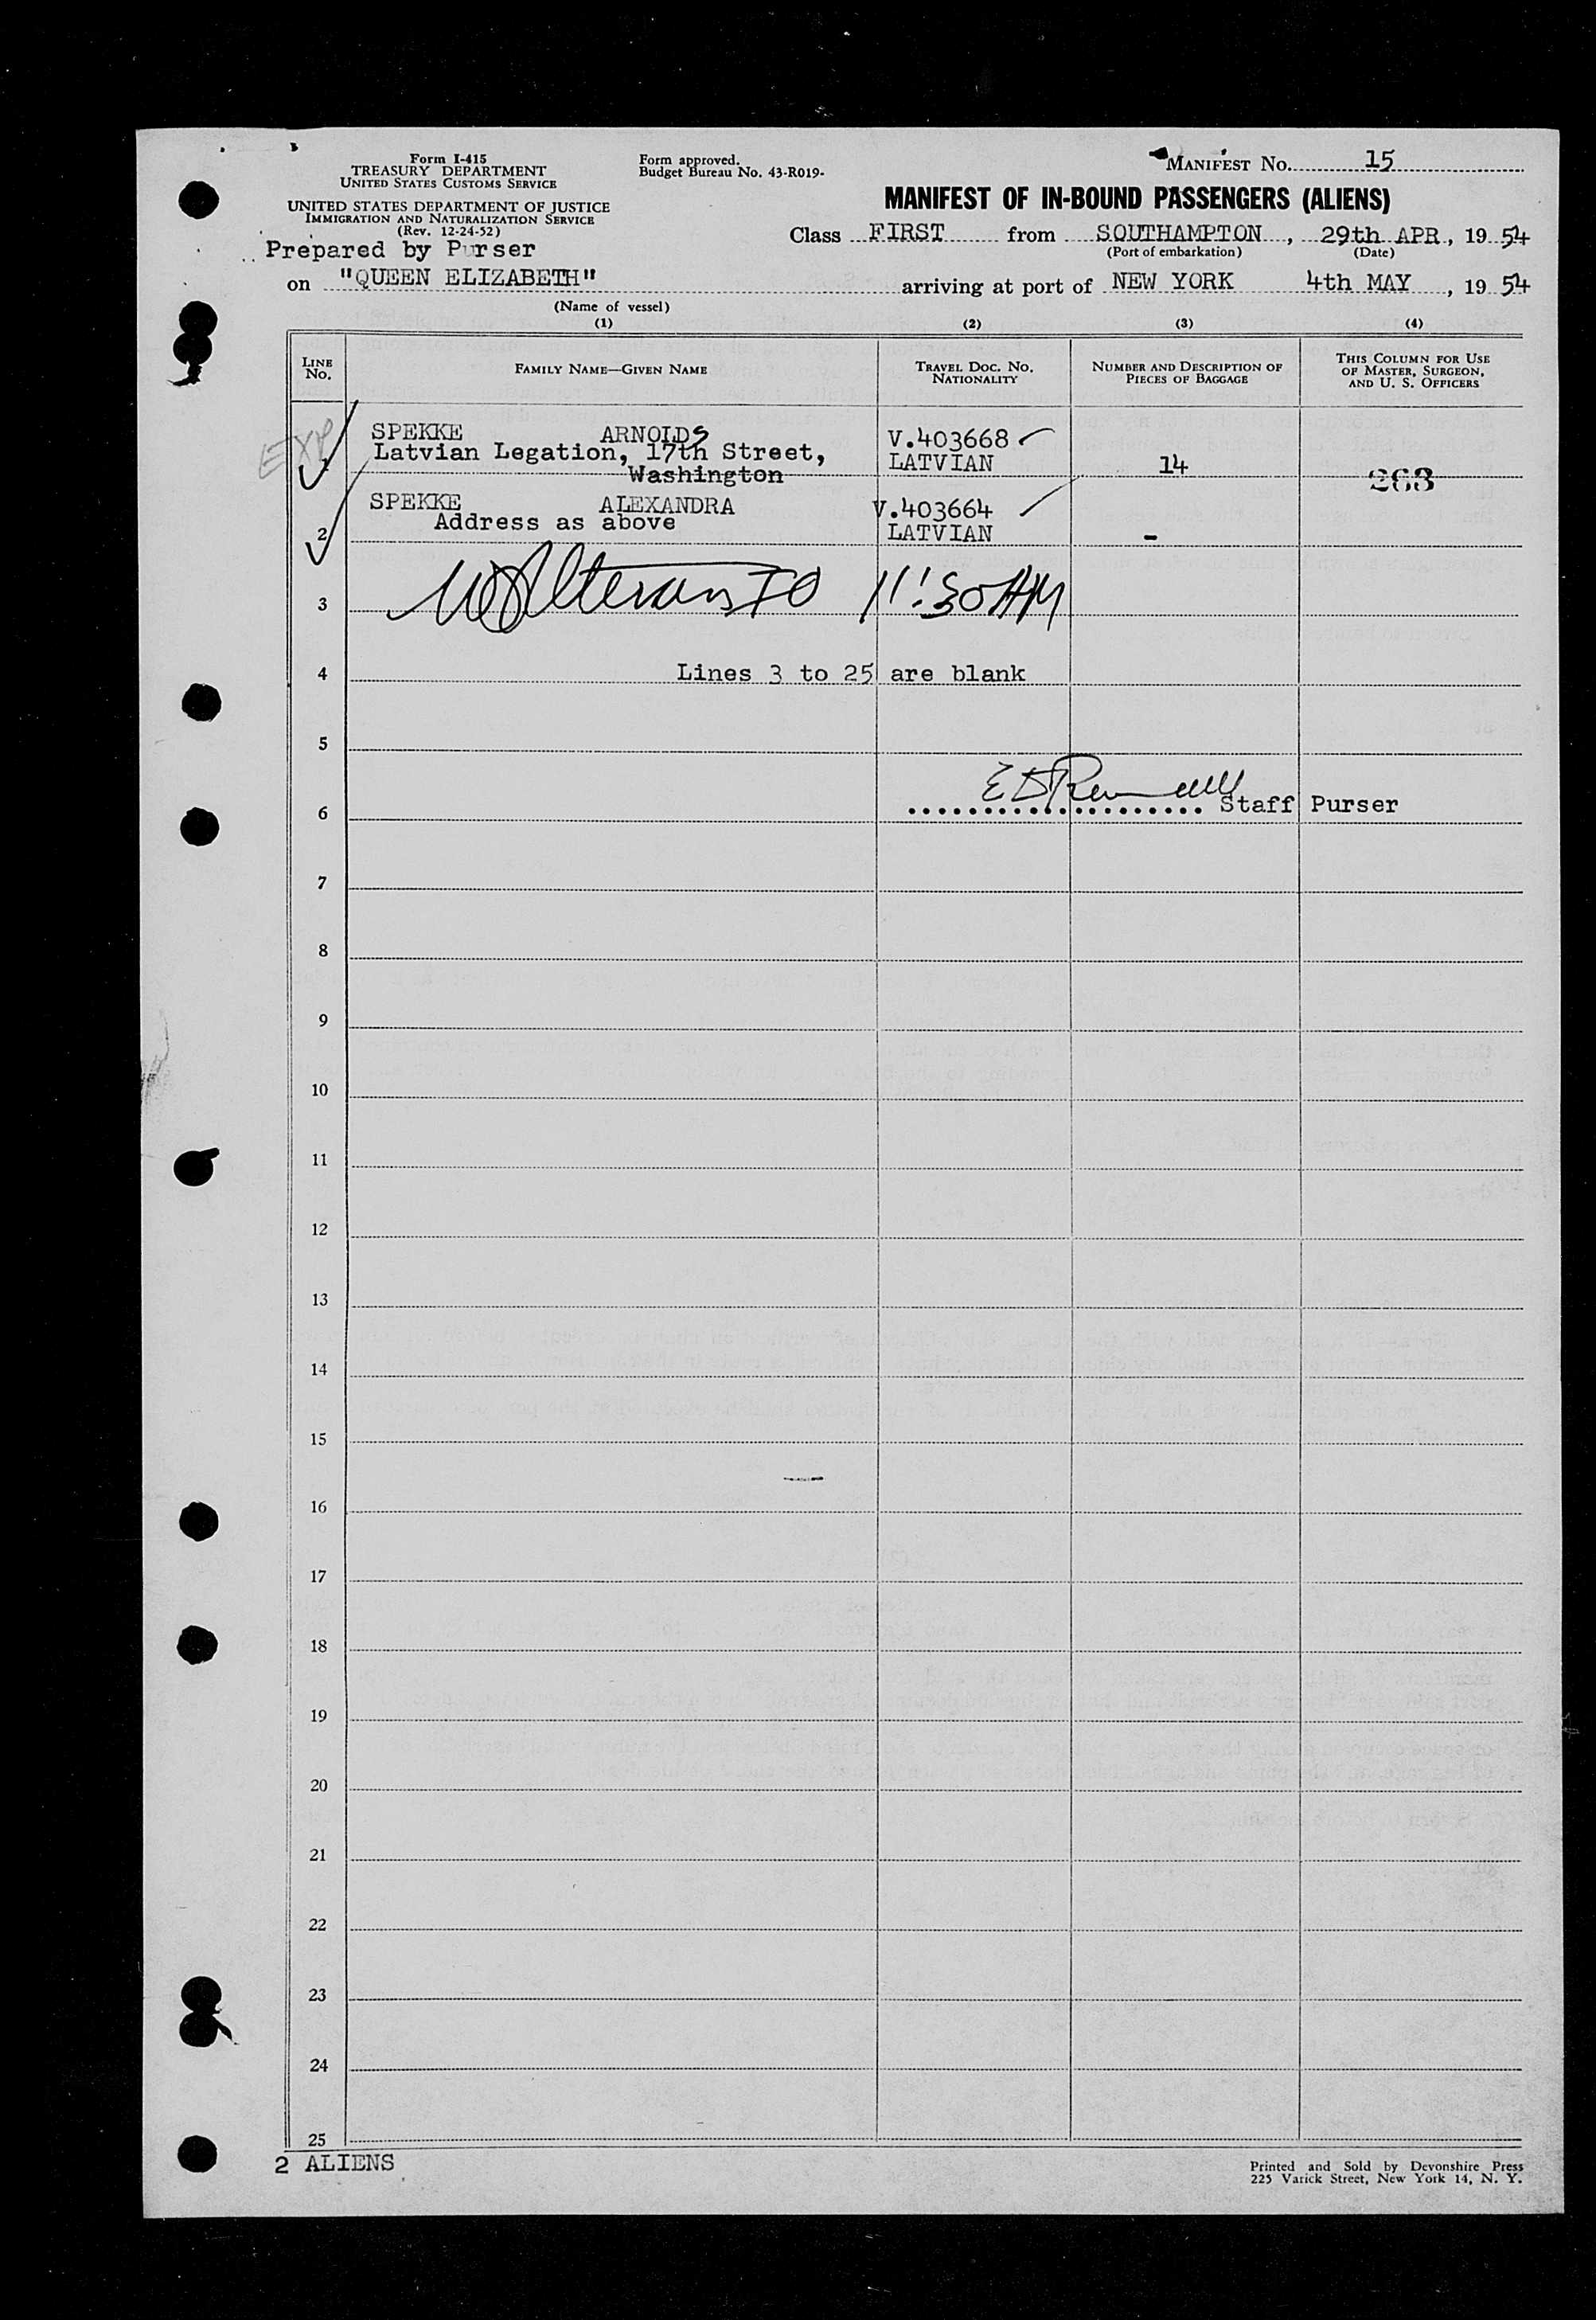 Form I-415
TREASURY DEPARTMENT
UNITED STATES CUSTOMS SERVICE
UNITED STATES DEPARTMENT OF JUSTICE
IMMIGRATION AND NATURALIZATION SERVICE
(Rev. 12-24-52)
Form approved.
Budget Bureau No. 43-R019-
MANIFEST NO. 15
MANIFEST OF IN-BOUND PASSENGERS (ALIENS)
Class FIRST from SOUTHAMPTON, 29th APR, 1954
(Port of embarkation) (Date)
Prepared by Purser
on "QUEEN ELIZABETH" arriving at port of NEW YORK 4th MAY, 1954
(Name of vessel)
(1) (2) (3) (4)
LINE NO. FAMILY NAME—GIVEN NAME TRAVEL DOC. NO. NATIONALITY NUMBER AND DESCRIPTION OF PIECES OF BAGGAGE THIS COLUMN FOR USE OF MASTER, SURGEON, AND U. S. OFFICERS
SPEKKE ARNOLDS V.403668
Latvian Legation, 17th Street, LATVIAN 14 263
Washington
SPEKKE ALEXANDRA V.403664
2 Address as above LATVIAN -
3 11:30 AM
4 Lines 3 to 25 are blank
5
6 Staff Purser
7
8
9
10
11
12
13
14
15
16
17
18
19
20
21
22
23
24
25
2 ALIENS
Printed and Sold by Devonshire Press
225 Varick Street, New York 14, N. Y.